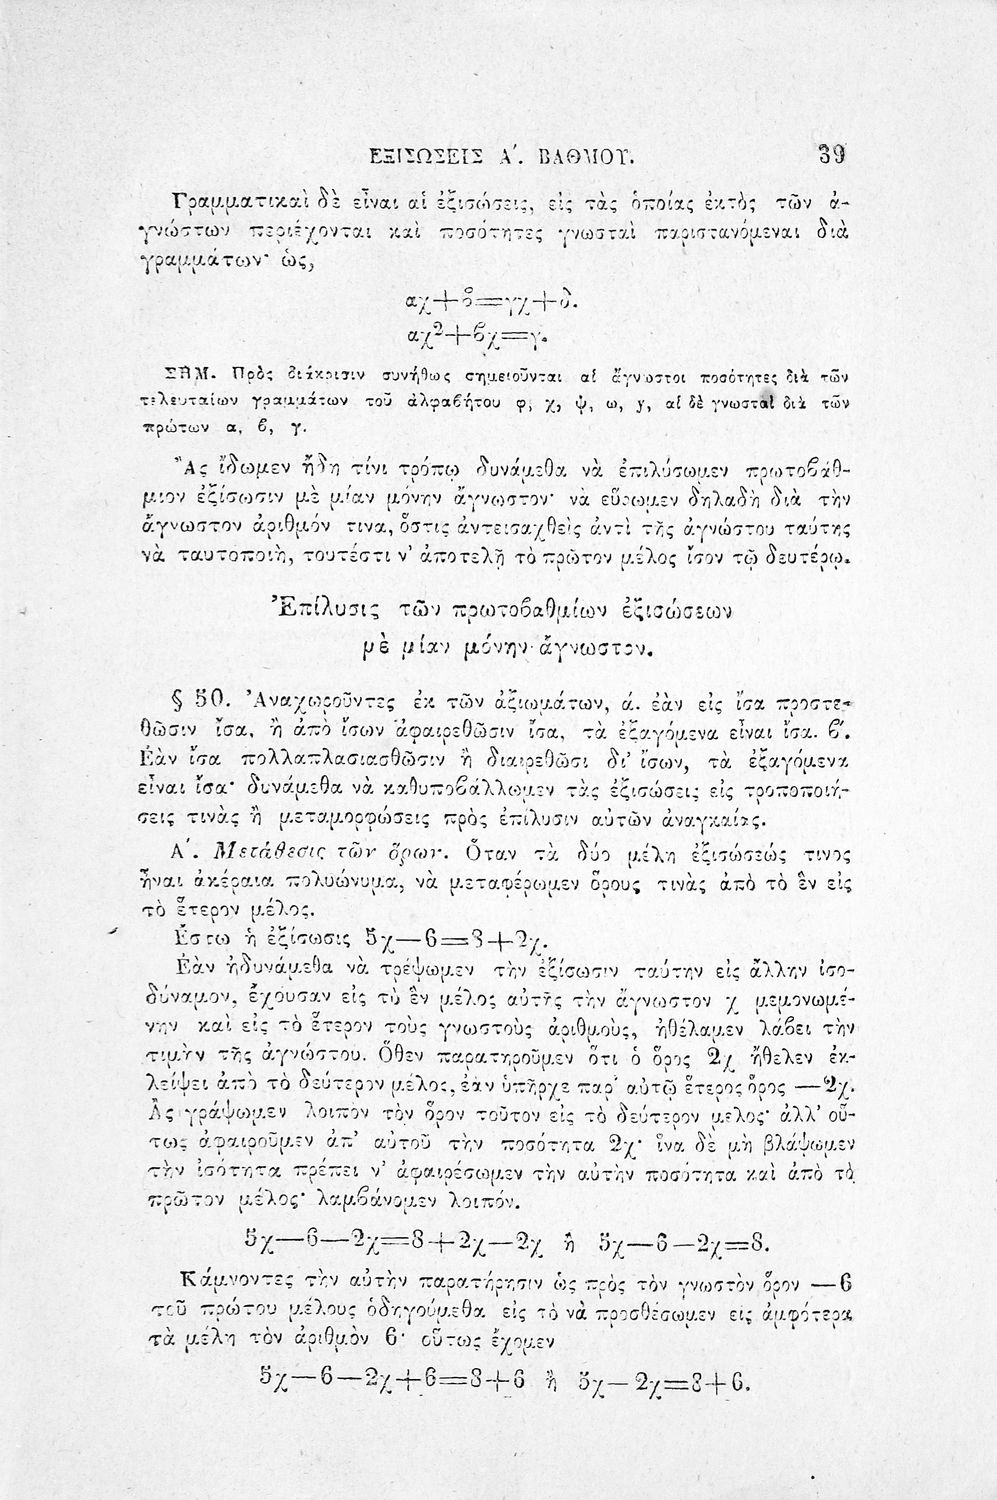 ΕΞΙΣΩΣΕΙΣ Α΄. ΒΑΘΜΟΥ. 39
Γραμματικαὶ δὲ εἶναι αἱ ἐξισώσεις, εἰς τὰς ὁποίας ἐκτὸς τῶν ἀ-
γνώστων περιέχονται καὶ ποσότητες γνωσταὶ παριστανόμεναι διὰ
γραμμάτων· ὡς,
αχ+ϐ=γχ+δ.
αχ²+ϐχ=γ.
ΣΗΜ. Πρὸς διάκρισιν συνήθως σημειοῦνται αἱ ἄγνωστοι ποσότητες διὰ τῶν
τελευταίων γραμμάτων τοῦ ἀλφαϐήτου φ, χ, ψ, ω, y, αἱ δὲ γνωσταὶ διὰ τῶν
πρώτων α, ϐ, γ.
Ἂς ἴδωμεν ἤδη τίνι τρόπῳ δυνάμεθα νὰ ἐπιλύσωμεν πρωτοϐάθ-
μιον ἐξίσωσιν μὲ μίαν μόνην ἄγνωστον· νὰ εὕρωμεν δηλαδὴ διὰ τὴν
ἄγνωστον ἀριθμόν τινα, ὅστις ἀντεισαχθεὶς ἀντὶ τῆς ἀγνώστου ταύτης
νὰ ταυτοποιῇ, τουτέστι ν' ἀποτελῇ τὸ πρῶτον μέλος ἴσον τῷ δευτέρῳ.
Ἐπίλυσις τῶν πρωτοϐαθμίων ἐξισώσεων
μὲ μίαν μόνην ἄγνωστον.
§ 50. Ἀναχωροῦντες ἐκ τῶν ἀξιωμάτων, ά. ἐὰν εἰς ἴσα προστε-
θῶσιν ἴσα, ἢ ἀπὸ ἴσων ἀφαιρεθῶσιν ἴσα, τὰ ἐξαγόμενα εἶναι ἴσα. ϐ΄.
Ἐὰν ἴσα πολλαπλασιασθῶσιν ἢ διαιρεθῶσι δι' ἴσων, τὰ ἐξαγόμενα
εἶναι ἴσα· δυνάμεθα νὰ καθυποϐάλλωμεν τὰς ἐξισώσεις εἰς τροποποιή-
σεις τινὰς ἢ μεταμορφώσεις πρὸς ἐπίλυσιν αὐτῶν ἀναγκαίας.
Α΄. Μετάθεσις τῶν ὅρων. Ὅταν τὰ δύο μέλη ἐξισώσεώς τινος
ἦναι ἀκέραια πολυώνυμα, νὰ μεταφέρωμεν ὅρους τινὰς ἀπὸ τὸ ἓν εἰς
τὸ ἕτερον μέλος.
Ἔστω ἡ ἐξίσωσις 5χ—6=8+2χ.
Ἐὰν ἠδυνάμεθα νὰ τρέψωμεν τὴν ἐξίσωσιν ταύτην εἰς ἄλλην ἰσο-
δύναμον, ἔχουσαν εἰς τὸ ἓν μέλος αὐτῆς τὴν ἄγνωστον χ μεμονωμέ-
νην καὶ εἰς τὸ ἕτερον τοὺς γνωστοὺς ἀριθμοὺς, ἠθέλαμεν λάϐει τὴν
τιμὴν τῆς ἀγνώστου. Ὅθεν παρατηροῦμεν ὅτι ὁ ὅρος 2χ ἤθελεν ἐκ-
λείψει ἀπὸ τὸ δεύτερον μέλος, ἐὰν ὑπῆρχε παρ' αὐτῷ ἕτερος ὅρος —2χ.
Ἂς γράψωμεν λοιπὸν τὸν ὅρον τοῦτον εἰς τὸ δεύτερον μέλος· ἀλλ' οὕ-
τως ἀφαιροῦμεν ἀπ' αὐτοῦ τὴν ποσότητα 2χ· ἵνα δὲ μὴ βλάψωμεν
τὴν ἰσότητα πρέπει ν' ἀφαιρέσωμεν τὴν αὐτὴν ποσότητα καὶ ἀπὸ τὸ
πρῶτον μέλος· λαμϐάνομεν λοιπόν.
5χ—6—2χ=8+2χ—2χ ἢ 5χ—6—2χ=8.
Κάμνοντες τὴν αὐτὴν παρατήρησιν ὡς πρὸς τὸν γνωστὸν ὅρον —6
τοῦ πρώτου μέλους ὁδηγούμεθα εἰς τὸ νὰ προσθέσωμεν εἰς ἀμφότερα
τὰ μέλη τὸν ἀριθμὸν 6· οὕτως ἔχομεν
5χ—6—2χ+6=8+6 ἢ 5χ—2χ=8+6.